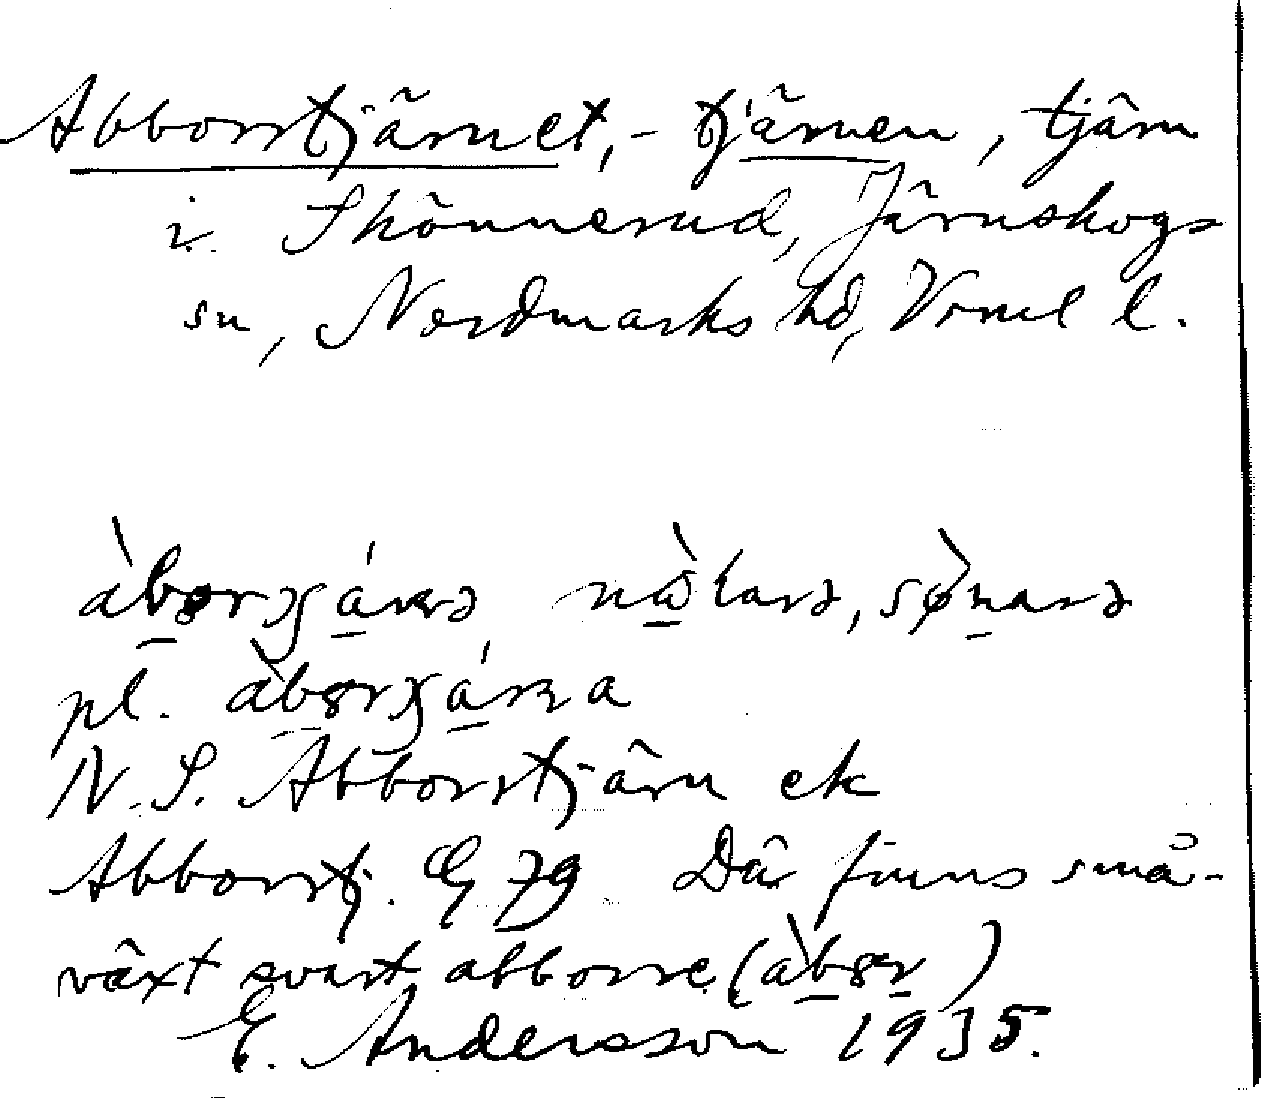 Abborrtjärnet, - tjärnen, tjärn
i Skönnerud, Järnskogs
sn, Nordmarks hd, Värml l.
pl.
N. S. Abborrtjärn ek
Abborrtj. G 79 Där finns små-
växt svart abborre (
E. Andersson 1935.